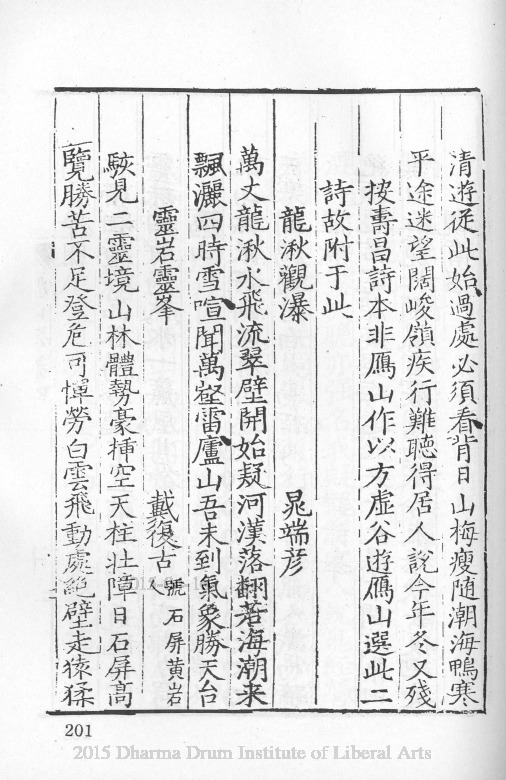 清遊從此始過處必須看背日山梅瘦随潮海鴨寒
平途迷望闊峻嶺疾行難聽得居人說今年冬又殘
按壽昌詩本非鴈山作以方虚谷遊鴈山選此二
詩故附于此
龍湫觀瀑 晁端彦
萬丈龍湫水飛流翠壁開始疑河漢落翻若海潮来
飄灑四時雪喧聞萬壑雷廬山吾未到氣象勝天台
靈岩靈峯 戴復古 號石屏黄岩人
駭見二靈境山林體勢豪挿空天柱壮障日石屏高
覽勝苦不足登危可憚勞白雲飛動處絶壁走猿猱
201
2015 Dharma Drum Institute of Liberal Arts